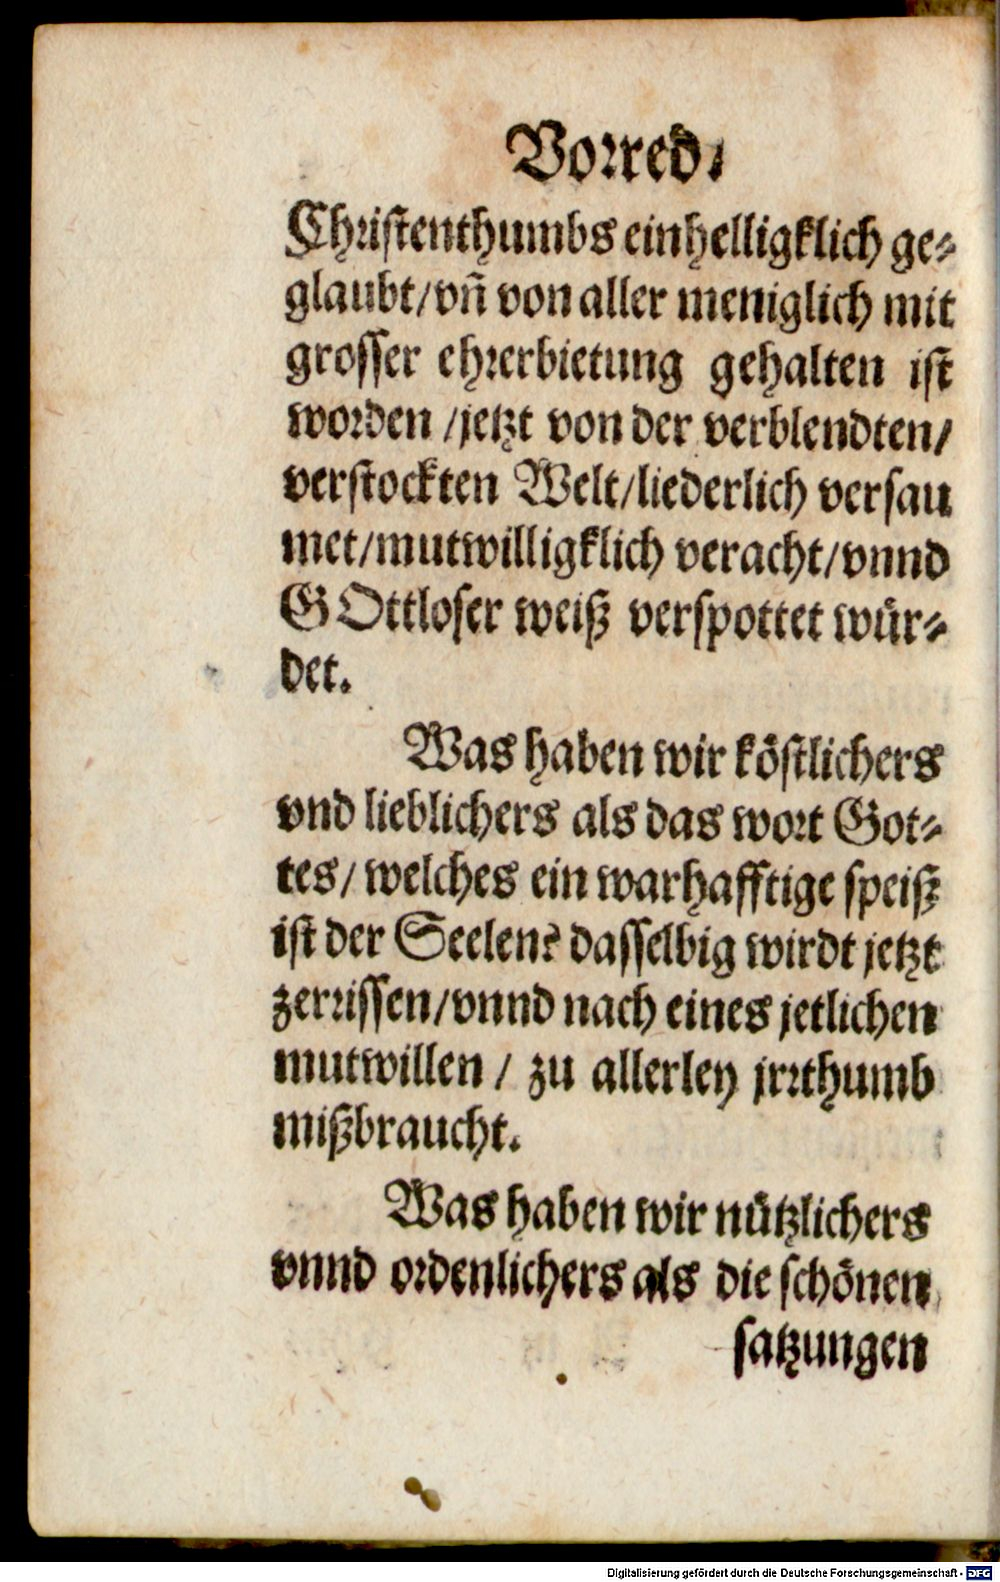 Vorred.
Christenthumbs einhelligklich ge-
glaubt/vñ von aller meniglich mit
grosser ehrerbietung gehalten ist
worden /jetzt von der verblendten/
verstockten Welt/liederlich versau
met/mutwilligklich veracht/vnnd
GOttloser weiß verspottet wür-
det.
Was haben wir köstlichers
vnd lieblichers als das wort Got-
tes/ welches ein warhafftige speiß
ist der Seelen? dasselbig wirdt jetzt
zerrissen/vnnd nach eines jetlichen
mutwillen / zu allerley jrrthumb
mißbraucht.
Was haben wir nützlichers
vnnd ordenlichers als die schönen
satzungen
Digitalisierung gefördert durch die Deutsche Forschungsgemeinschaft - DFG